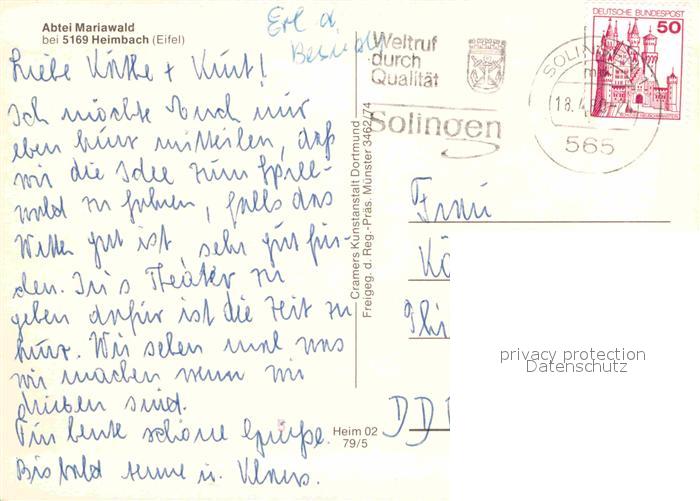 Abtei Mariawald
bei 5169 Heimbach (Eifel)
Erl d.
Weltruf
durch
Qualität
Solingen
SOLINGEN
18. 4.
565
DEUTSCHE BUNDESPOST
50
Liebe Käthe + Kurt!
Ich möchte Euch nur
eben kurz mitteilen, daß
wir die Idee zum Spree-
wald zu fahren, falls das
Wetter gut ist, sehr gut fin-
den. In's Theater zu
gehen dafür ist die Zeit zu
kurz. Wir sehen mal was
wir machen wenn wir
drüben sind.
Für heute schöne Grüße.
Bis bald u. Klaus.
Cramers Kunstanstalt Dortmund
Freigeg. d. Reg.-Präs. Münster 3462/74
Heim 02
79/5
Frau
Kä
DD
privacy protection
Datenschutz